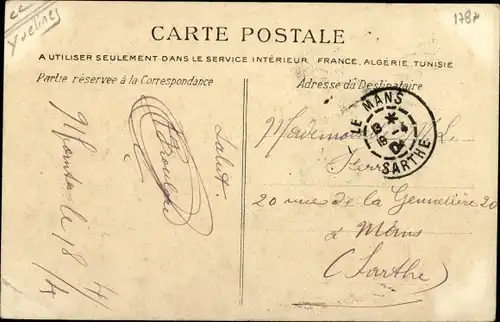 CC
Yvelines
1787
CARTE POSTALE
A UTILISER SEULEMENT DANS LE SERVICE INTÉRIEUR, FRANCE, ALGÉRIE, TUNISIE
Partie réservée à la Correspondance
Adresse du Destinataire
LE MANS
SARTHE
Salut.
Mademoiselle
20 rue de la 20
à Mans
(Sarthe)